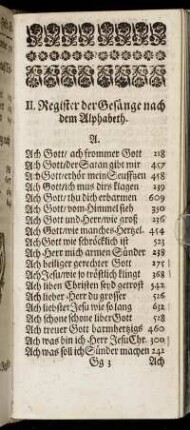 II. Register der Gesänge nach
dem Alphabeth.
A.
Ach Gott/ ach frommer Gott 218
Ach Gott/der Satan gibt mir 457
Ach Gott/erhör mein Seufftzen 458
Ach Gott/ich mus dirs klagen 239
Ach Gott/ thu dich erbarmen 609
Ach Gott/vom Himmel sieh 330
Ach Gott und Herr/wie groß 236
Ach Gott/wie manches Hertzel. 454
Ach Gott wie schröcklich ist 523
Ach Herr mich armen Sünder 238
Ach heiliger gerechter Gott 275
Ach Jesu/wie so tröstlich klingt 368
Ach liben Christen seyd getrost 542
Ach lieber Herr du grosser 526
Ach liebster Jesu wie so lang 632
Ach schone schone liber Gott 518
Ach treuer Gott barmhertzigs 460
Ach was bin ich Herr JesuChr. 300
Ach was soll ich Sünder machen 242
Gg 3 Ach